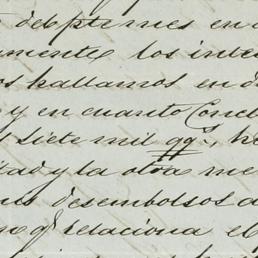 del pte mes en
amente los inte
os hallamos en d
y en cuanto Concl
siete mil qqs, he
tad y la otra me
us desembolsos a
q relaciona el